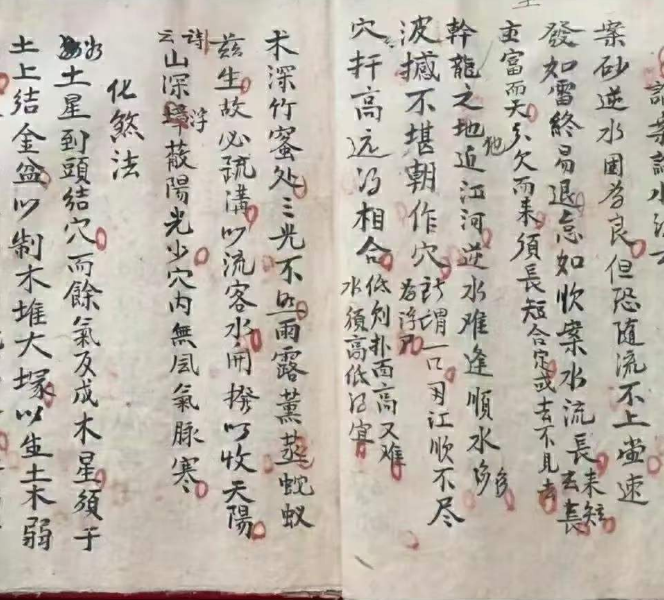 案砂逆水固为良但恐随流不上堂速
發如雷終易退怠如欣案水流長去長来短
亥富而天久欠而来須長短合宗或去不見去
幹龍之地近江河逆水难逢順水多
他
波撼不堪朝作穴所謂一口因江順不尽
为浮
穴扦高远乃相合低则扑面高又难
水須高低得宜
木深竹蜜处三光不照雨露薰蒸蜿蚁
兹生故必疏溝以流客水開撥以收天陽
诗云山深蔽陽光少穴内無風氣脉寒
浮
化煞法
土星到頭結穴而餘氣反成木星須于
土上結金盆以制木堆大塚以生土木弱